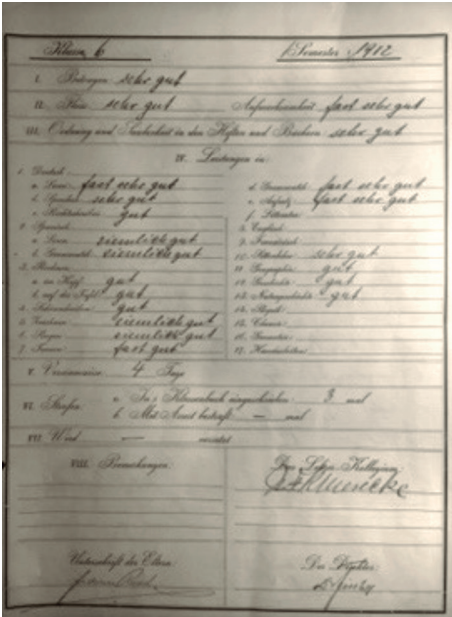 Klasse 6 1 Semester 1912
I. Betragen sehr gut
II. Fleiss sehr gut Aufmerksamkeit fast sehr gut
III. Ordnung und Sauberkeit in den Heften und Büchern sehr gut
IV. Leistungen in
1. Deutsch
a. Lesen fast sehr gut
b. Sprechen sehr gut
c. Rechtschreiben gut
d. Grammatik fast sehr gut
e. Aufsatz fast sehr gut
f. Litteratur
2. Spanisch
a. Lesen ziemlich gut
b. Grammatik ziemlich gut
3. Rechnen
a. im Kopf gut
b. auf der Tafel gut
4. Schönschreiben gut
5. Zeichnen ziemlich gut
6. Singen ziemlich gut
7. Turnen fast gut
8. Englisch
9. Französisch
10. sehr gut
11. Geographie gut
12. Geschichte gut
13. Naturgeschichte gut
14. Physik
15. Chemie
16. Geometrie
17. Handarbeiten
V. Versäumnisse 4 Tage
VI. Strafen a. Ins Klassenbuch eingeschrieben 3 mal
b. Mit Arrest bestraft — mal
VII. Wird — versetzt
VIII. Bemerkungen.
Das Lehrer-Kollegium
Unterschrift der Eltern
Der Direktor